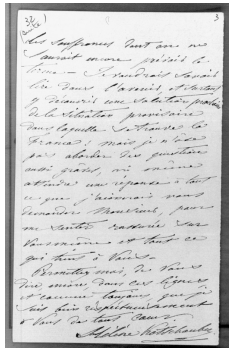 3
des souffrances dont on ne
saurait encore prédire le
terme — Je voudrais savoir
lire dans l'avenir, et surtout
y découvrir une solution prochaine
de la situation provisoire
dans laquelle se trouve la
France; mais je n'ose
pas aborder des questions
aussi graves, ni même
attendre une réponse à tout
ce que j'aimerais vous
demander Monsieur, pour
me sentir rassurée sur
vous-même et tout ce
qui tient à Vous.
Permettez-moi, de Vous
dire encore dans ces lignes
et comme toujours que je
suis bien respectueusement
à Vous de tout cœur
Hélène